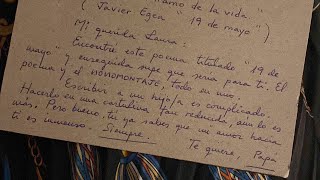 "tramo de la vida"
( Javier Egea " 19 de mayo " )
Mi querida Laura :
Encontré este poema titulado " 19 de
mayo " y enseguida supe que sería para ti. El
poema y el BONOMONTAJE, todo en uno.
Escribir a un hijo/a es complicado.
Hacerlo en una cartulina tan reducida, aún lo es
más. Pero bueno, tú ya sabes que mi amor hacia
ti es inmenso. Siempre.
Te quiere, Papá